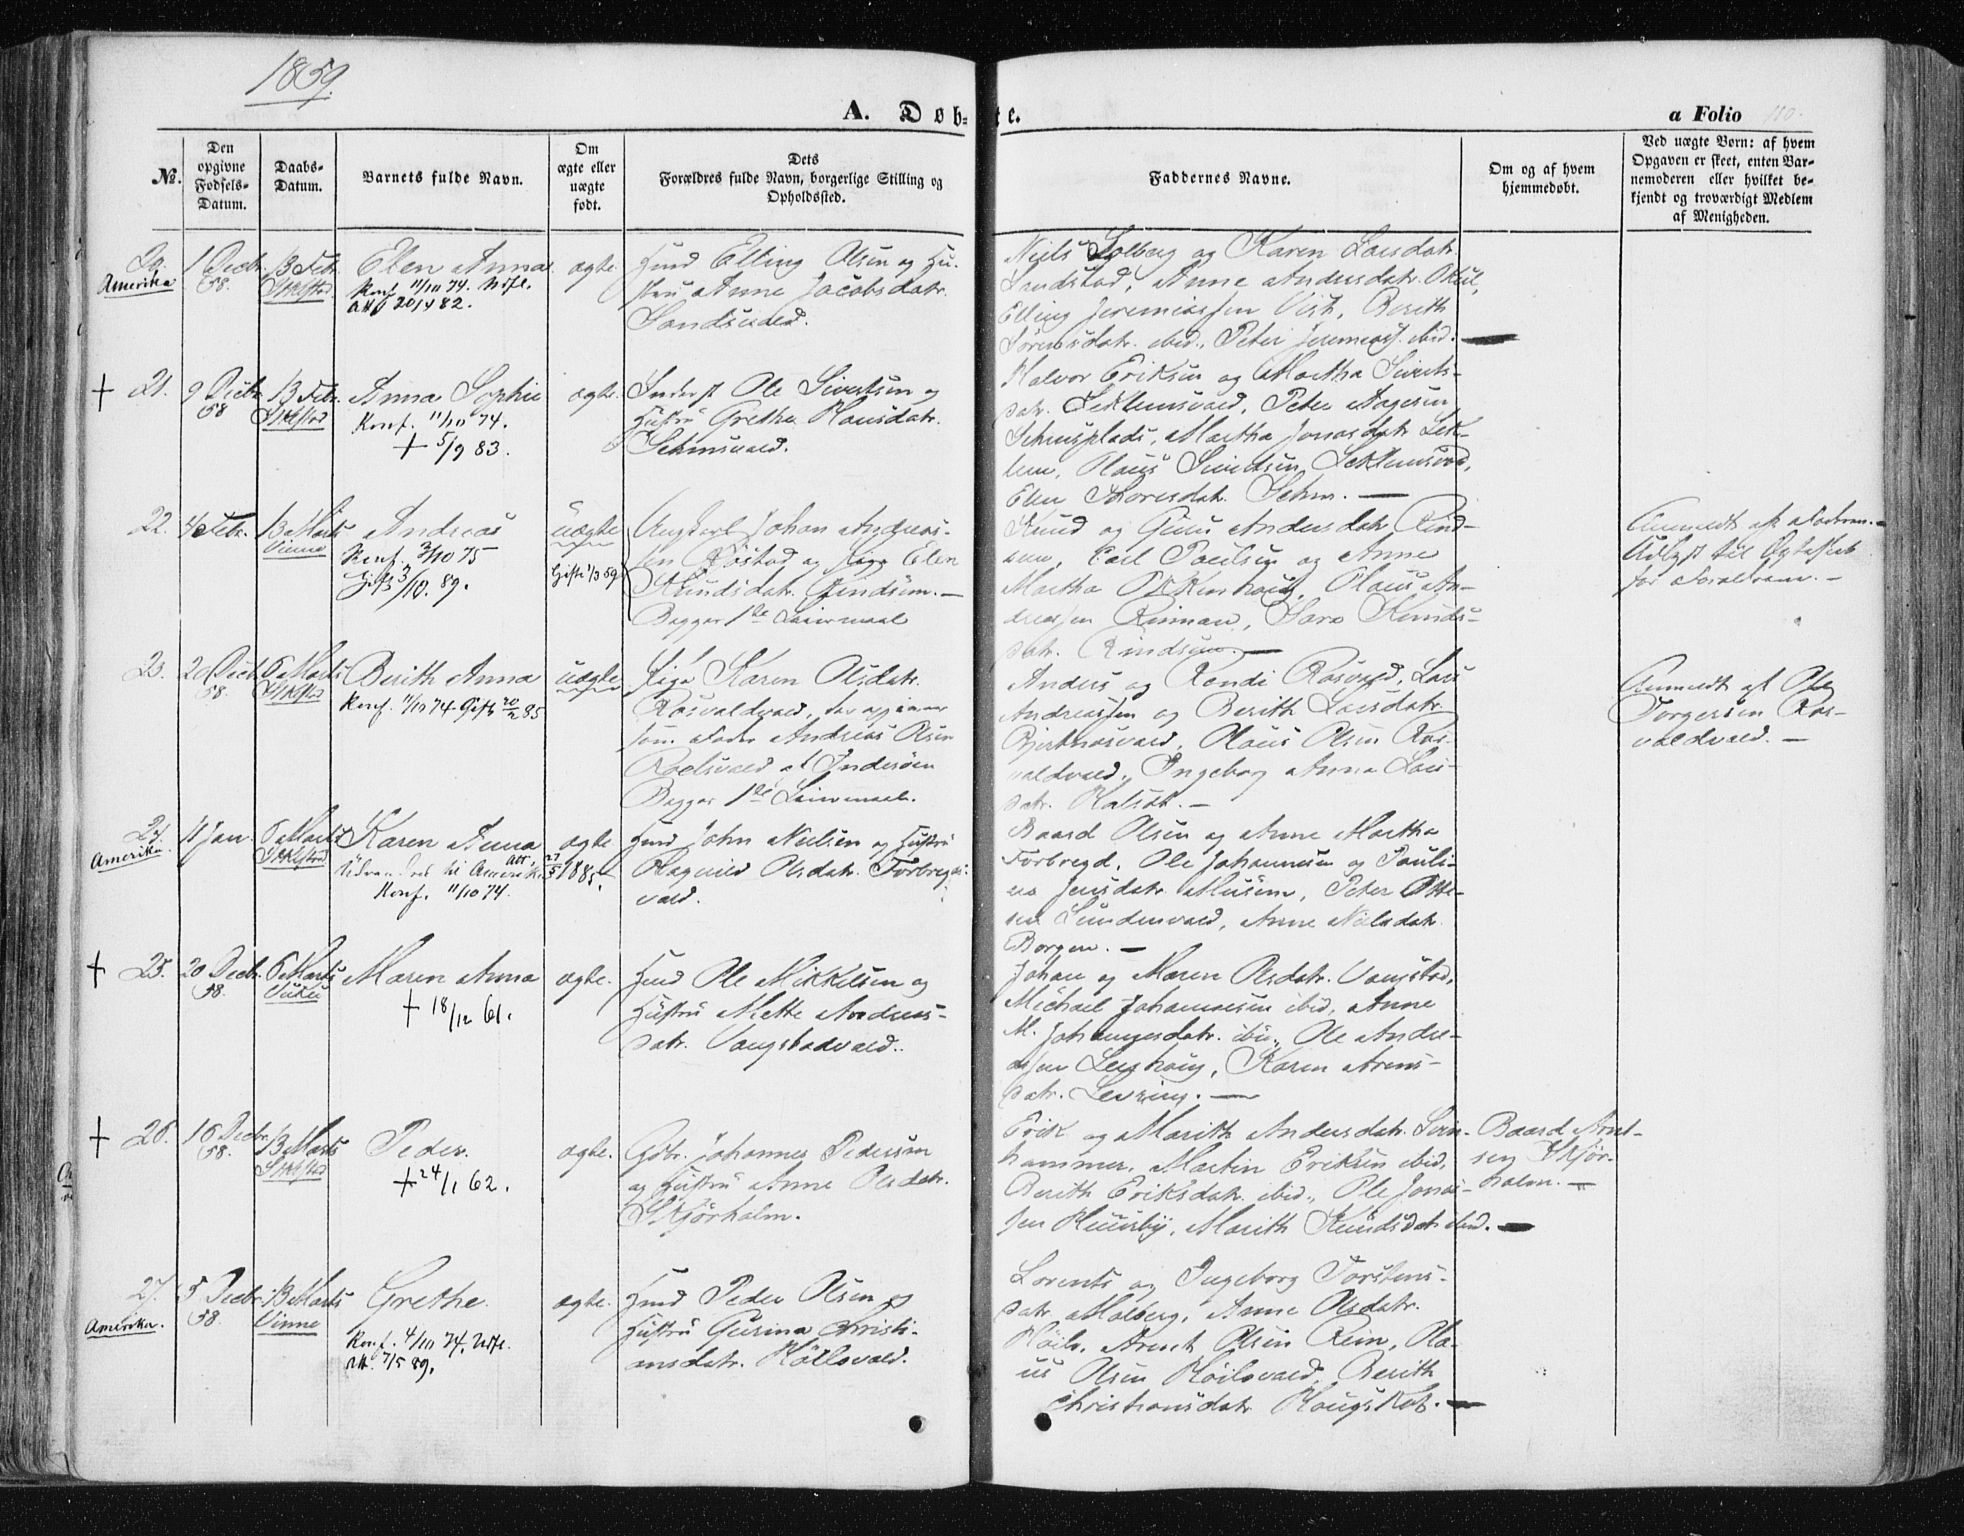 1859.
A. Døb=
te.
a Folio 110.
No.
Den opgivne Fødsels-Datum.
Daabs-Datum.
Barnets fulde Navn.
Om ægte eller uægte født.
Dets Forældres fulde Navn, borgerlige Stilling og Opholdssted.
Faddernes Navne.
Om og af hvem hjemmedøbt.
Ved uægte Børn: af hvem Opgaven er skeet, enten Barnemoderen eller hvilket bekjendt og troværdigt Medlem af Menigheden.
20.
Amerika
1 Decbr.
58.
13 Febr.
Elen Anna
Konf. 11/10 74.
att 20/4 82.
ægte.
Huusmd Elling Olsen og Hu-
stru Anne Jacobsdatr.
Niels Solberg og Karen Larsdatr.
Sundstad, Anne Andersdatr.
Elling Jeremiassen Vist, Berith
Sørensdatr. ibid., Peter Jeremiass. ibid. —
+ 21.
9 Decbr.
58
13 Febr.
Anna Sophie
Konf. 11/10 74.
+ 5/9 83.
ægte.
Inderst Ole Sivertsen og
Hustru Grethe Hansdatr.
Halvor Eriksen og Martha Siverts-
datr. Leklemsvald, Peter Aagesen
Martha Jonasdatr. Lek-
lem, Olaus Sivertsen Leklemsvald,
Elen Thoresdatr. —
22.
4 Febr.
13 Marts
Vinne
Andreas
Konf. 3/10 75
Gift 3/10. 89.
uægte
Gifte 1/3 59
Ungkarl Johan Andreas-
sen Røstad og Pige Elen
Knudsdatr. Rindsem. —
Begges 1de Leiermaal
Knud og Guru Andersdatr. Rind-
sem, Carl Paulsen og Anne
Martha Okkenhaug, Olaus An-
dreassen Rinnan, Sara Knuds-
datr. Rindsem. —
Anmeldt af Faderen. —
Udlyst til Ægteskab
for Forældrene. —
23.
20 Decbr.
58.
6 Marts
Berith Anna
Konf. 11/10 74 Gift 20/2 85
uægte
Pige Karen Olsdatr.
Rosvaldvald, der opgiver
som Fader Andreas Olsen
Roelsvald af Inderøen
Begges 1de Leiermaal.
Anders og Randi Rosvald, Lars
Andreassen og Berith Larsdatr.
Bjertnæsvald, Olaus Olsen Ros-
valdvald, Ingeborg Anna Lars-
datr.
Anmeldt af Ole
Torgersen Ros-
valdvald. —
24.
Amerika.
11 Jan.
6 Marts
Karen Anna
Udvandret til Amerika att. 27/5 1885.
Konf. 11/10 74.
ægte
Huusmd John Nielsen og Hustru
Ragnild Olsdatr. Forbregds-
vald.
Baard Olsen og Anne Martha
Forbregd, Ole Johannesen og Pauli-
ne Jensdatr. Musum, Peter Otte-
sen Sundenvald, Anne Nielsdatr.
Borgen. —
+ 25.
20 Decbr.
58.
6 Marts
Vuku
Maren Anna
+ 18/12 61.
ægte.
Huusmd Ole Mikkelsen og
Hustru Mette Andreas-
datr. Vangstadvald.
Johan og Maren Olsdatr. Vangstad,
Michael Johannesen ibid, Anne
M. Johannesdatr. ibid., Ole Andre-
assen Levrhaug, Karen Arens-
datr. Levring. —
+ 26.
16 Decbr.
58.
13 Marts
Peder.
+ 24/1 62.
ægte.
Gdbr. Johannes Pedersen
og Hustru Anne Olsdatr.
Skjørholm.
Erik og Marith Andersdatr. Svin-
hammer, Martin Eriksen ibid,
Berith Eriksdatr. ibid., Ole Jonas-
sen Huusby, Marith Knudsdatr. ibid. —
Baard Arnt-
sen Skjør-
holm. —
27.
Amerika.
5 Decbr.
58.
13 Marts
Vinne
Grethe.
Konf. 4/10 74.
att. 7/5 89.
ægte.
Huusmd Peder Olsen og
Hustru Gurina Christi-
ansdatr. Høilovald.
Lorents og Ingeborg Torstens-
datr. Molberg, Anne Olsdatr.
Høilo, Arnt Olsen Rein, Ola-
us Olsen Høilovald, Berith
Christiansdatr. —